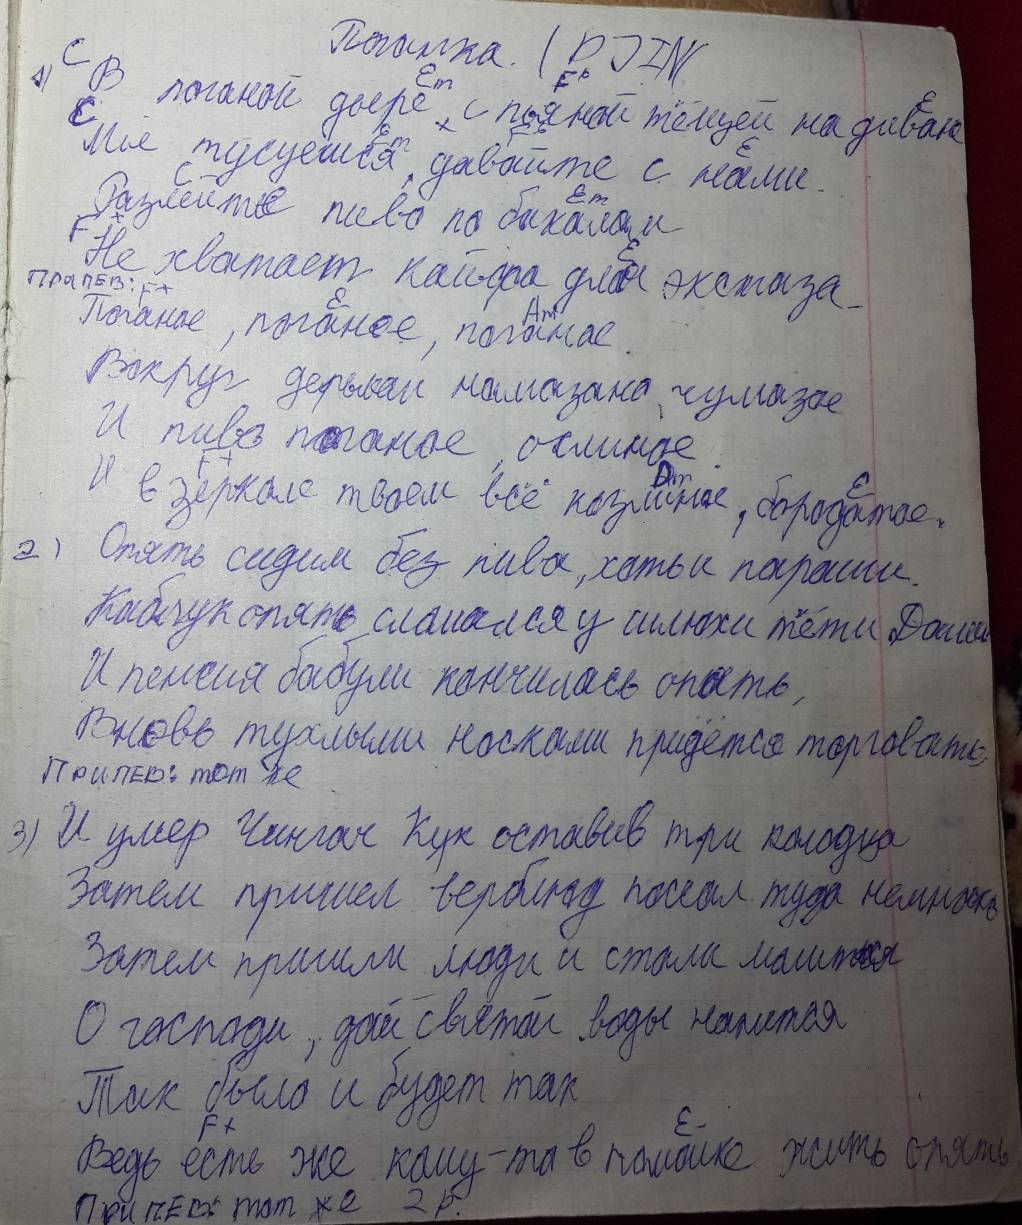 Поганка. (DJIN)
C Em F+ E
1) В поганой дыре, с пьяной тёщей на диване
C Em F+ E
Мы тусуемся, давайте с нами.
C Em
Разлейте пиво по бакалам
F+ E
Не хватает кайфа для экстаза
ПРИПЕВ: F+ E Am
Поганое, поганое, поганое
Вокруг дерьмом намазано, чумазое
И пиво поганое, ослиное
F+ Dm E
И в зеркале твоем всё козлиное, бородатое.
2) Опять сидим без пива, хотьи параши.
опять сламался у шлюхи тёти Даши
И пенсия бабули кончилась опять,
Вновь тухлыми носками придётса торговать.
ПРИПЕВ: тот же
3) И умер Чингач Кук оставив три колодца
Затем пришел верблюд поссал туда немношко
Затем пришли люди и стали малитися
О господи, дай святой воды напится
Так было и будет так
F+ E
Ведь есть же каму-то в помойке жить опять
ПРИПЕВ: тот же 2 р.